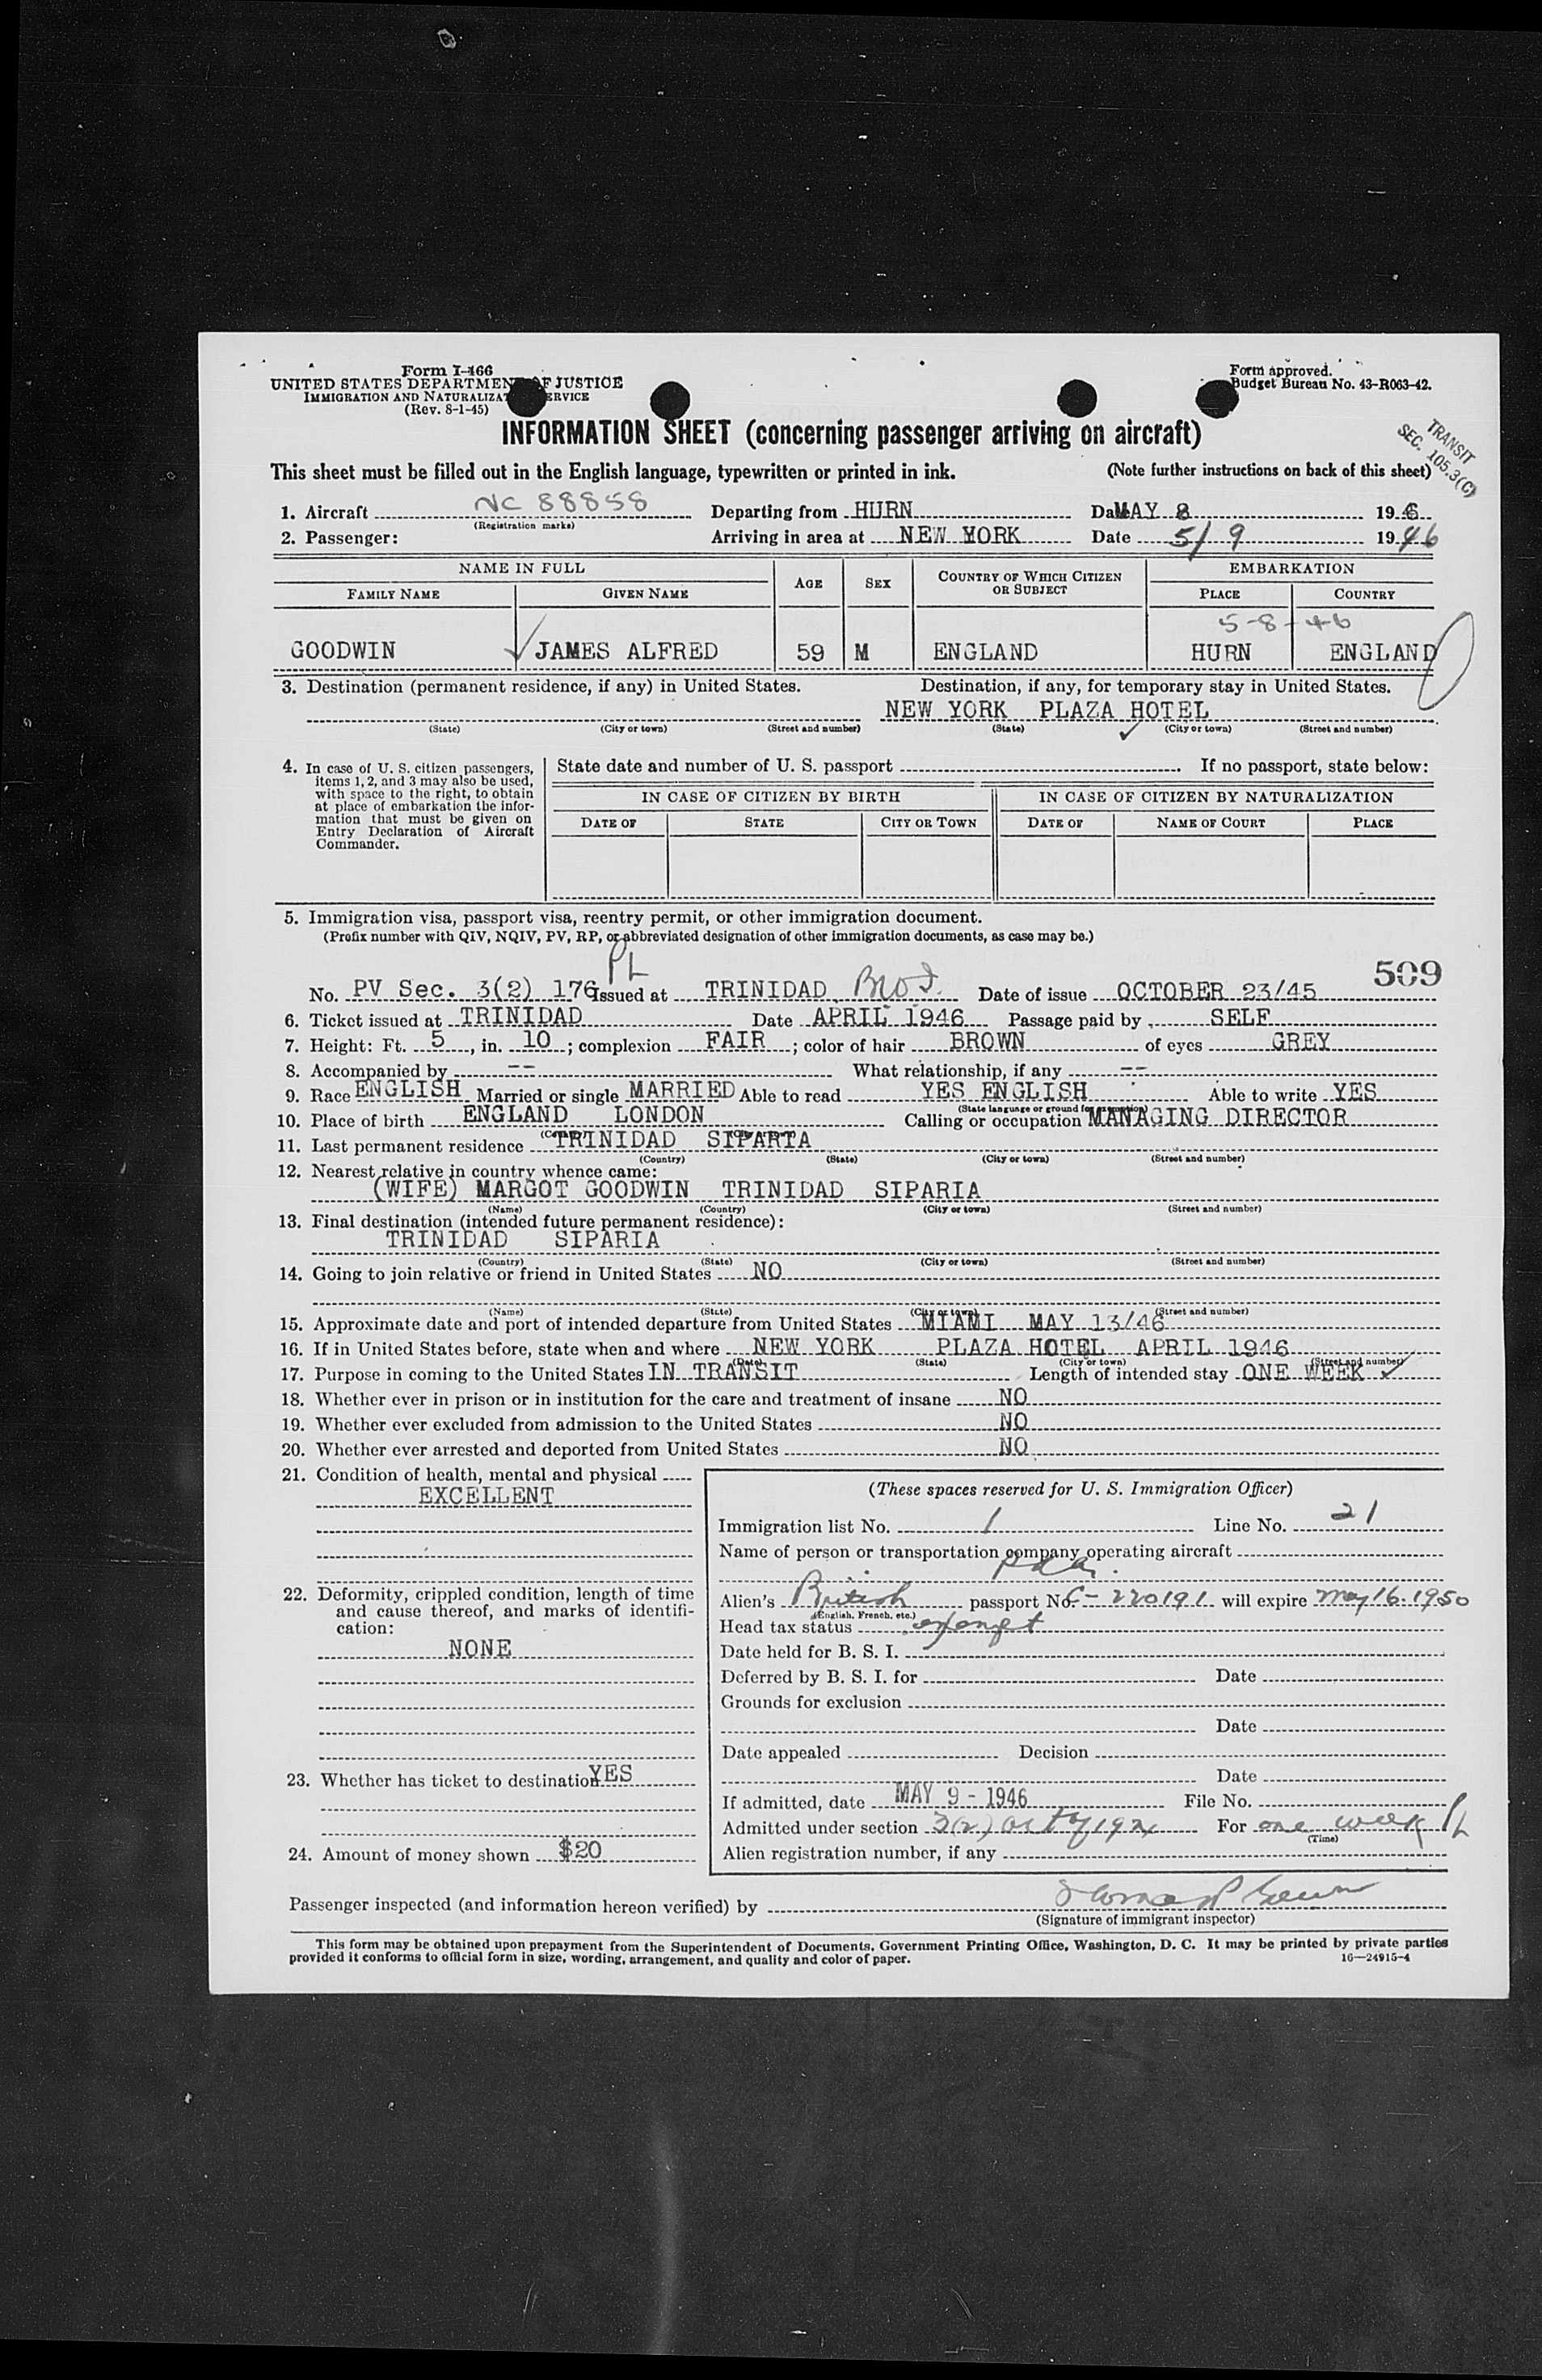 Form I-466
UNITED STATES DEPARTMENT OF JUSTICE
IMMIGRATION AND NATURALIZATION SERVICE
(Rev. 8-1-45)
Form approved.
Budget Bureau No. 43-R063-42.
INFORMATION SHEET (concerning passenger arriving on aircraft)
TRANSIT
SEC. 105.3(C)
This sheet must be filled out in the English language, typewritten or printed in ink. (Note further instructions on back of this sheet)
1. Aircraft NC 88858 Departing from HURN Date MAY 8 1946
(Registration marks)
2. Passenger: Arriving in area at NEW YORK Date 5/9 1946
NAME IN FULL AGE SEX COUNTRY OF WHICH CITIZEN OR SUBJECT EMBARKATION
FAMILY NAME GIVEN NAME PLACE COUNTRY
5-8-46
GOODWIN JAMES ALFRED 59 M ENGLAND HURN ENGLAND
3. Destination (permanent residence, if any) in United States. Destination, if any, for temporary stay in United States.
NEW YORK PLAZA HOTEL
(State) (City or town) (Street and number) (State) (City or town) (Street and number)
4. In case of U. S. citizen passengers, items 1, 2, and 3 may also be used, with space to the right, to obtain at place of embarkation the information that must be given on Entry Declaration of Aircraft Commander.
State date and number of U. S. passport If no passport, state below:
IN CASE OF CITIZEN BY BIRTH IN CASE OF CITIZEN BY NATURALIZATION
DATE OF STATE CITY OR TOWN DATE OF NAME OF COURT PLACE
5. Immigration visa, passport visa, reentry permit, or other immigration document.
(Prefix number with QIV, NQIV, PV, RP, or abbreviated designation of other immigration documents, as case may be.)
PL
509
No. PV Sec. 3(2) 176 Issued at TRINIDAD Date of issue OCTOBER 23/45
6. Ticket issued at TRINIDAD Date APRIL 1946 Passage paid by SELF
7. Height: Ft. 5, in. 10; complexion FAIR; color of hair BROWN of eyes GREY
8. Accompanied by -- What relationship, if any --
9. Race ENGLISH Married or single MARRIED Able to read YES ENGLISH Able to write YES
(State language or ground for exemption)
10. Place of birth ENGLAND LONDON Calling or occupation MANAGING DIRECTOR
11. Last permanent residence TRINIDAD SIPARIA
(Country) (State) (City or town) (Street and number)
12. Nearest relative in country whence came:
(WIFE) MARGOT GOODWIN TRINIDAD SIPARIA
(Name) (Country) (City or town) (Street and number)
13. Final destination (intended future permanent residence):
TRINIDAD SIPARIA
(Country) (State) (City or town) (Street and number)
14. Going to join relative or friend in United States NO
(Name) (State) (City or town) (Street and number)
15. Approximate date and port of intended departure from United States MIAMI MAY 13/46
16. If in United States before, state when and where NEW YORK PLAZA HOTEL APRIL 1946
(Date) (State) (City or town) (Street and number)
17. Purpose in coming to the United States IN TRANSIT Length of intended stay ONE WEEK
18. Whether ever in prison or in institution for the care and treatment of insane NO
19. Whether ever excluded from admission to the United States NO
20. Whether ever arrested and deported from United States NO
21. Condition of health, mental and physical
EXCELLENT
22. Deformity, crippled condition, length of time and cause thereof, and marks of identification:
NONE
23. Whether has ticket to destination YES
24. Amount of money shown $20
(These spaces reserved for U. S. Immigration Officer)
Immigration list No. 1 Line No. 21
Name of person or transportation company operating aircraft
Alien's British passport No. C-220191 will expire May 16-1950
(English, French, etc.)
Head tax status exempt
Date held for B. S. I.
Deferred by B. S. I. for Date
Grounds for exclusion
Date
Date appealed Decision
Date
If admitted, date MAY 9 - 1946 File No.
Admitted under section 3(2) act of 1924 For one week PL
(Time)
Alien registration number, if any
Passenger inspected (and information hereon verified) by
(Signature of immigrant inspector)
This form may be obtained upon prepayment from the Superintendent of Documents, Government Printing Office, Washington, D. C. It may be printed by private parties
provided it conforms to official form in size, wording, arrangement, and quality and color of paper. 16—24915-4